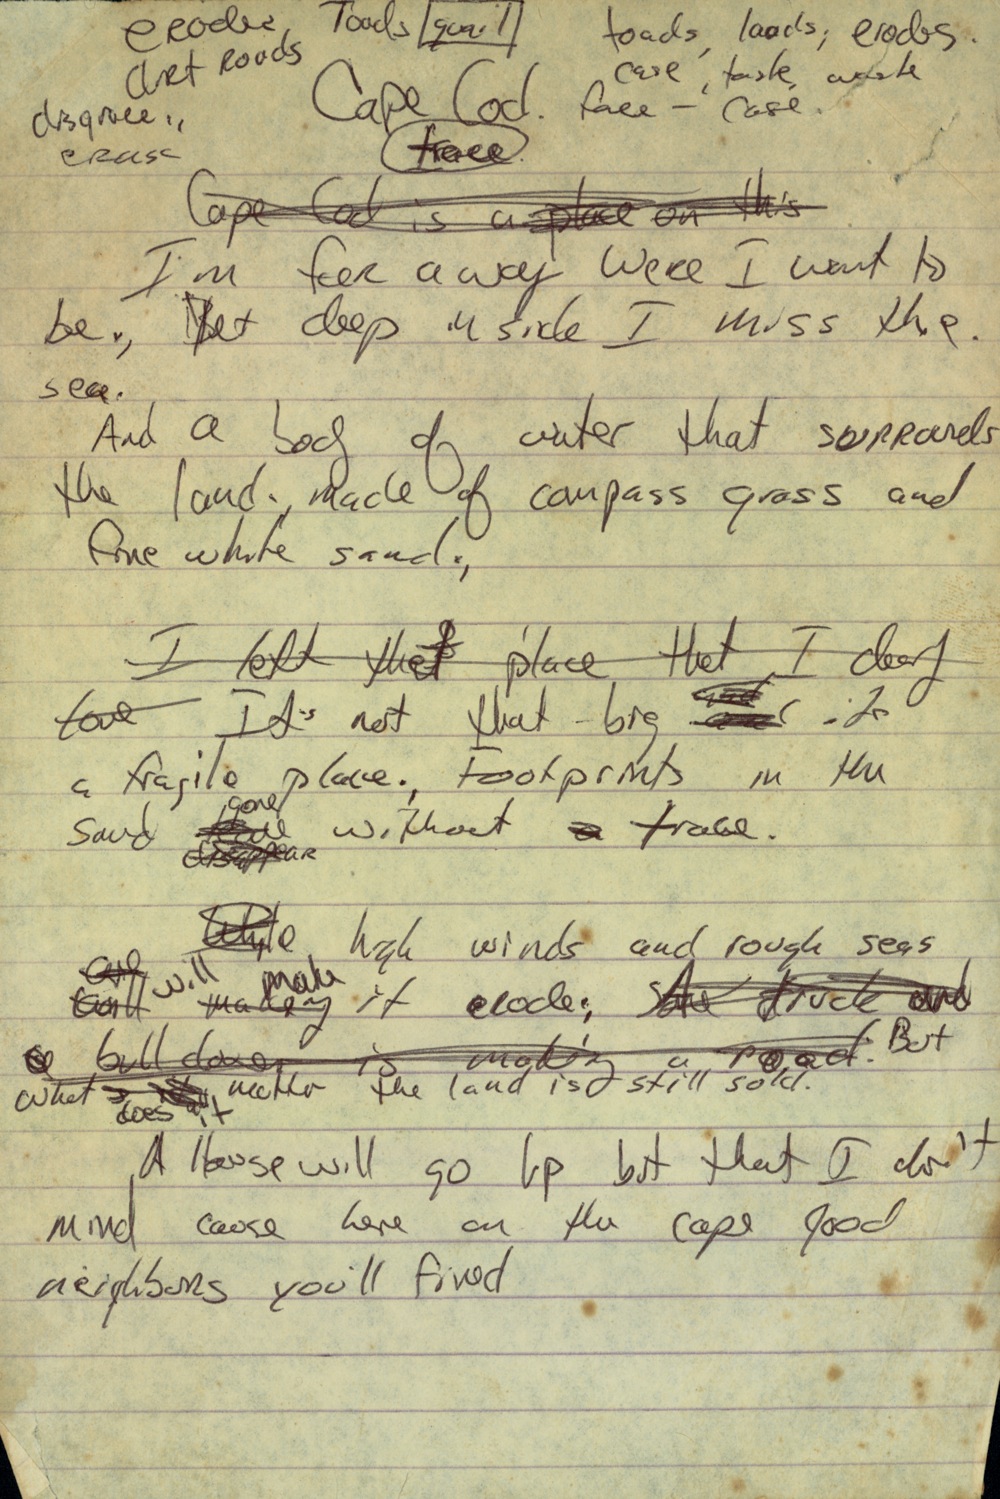 erodes Toads quail toads, loads; erodes.
dirt Roads case, task, waste
disgrace., Cape Cod. face - case.
erase trace
Cape Cod is a place on this
I'm feer away were I want to
be., Yet deep inside I miss the.
sea.
And a body of water that surrounds
the land., made of compass grass and
fine white sand.,
I left that place that I dearly
love It's not that big its
a fragile place., Footprints in the
gone
sand without a trace.
disappear
While high winds and rough seas
will make
making it erode; truck and
a bull dozer is making a road. But
what matter the land is still sold.
does it
A House will go Up but that I don't
mind cause here on the cape good
neighbors you'll fined